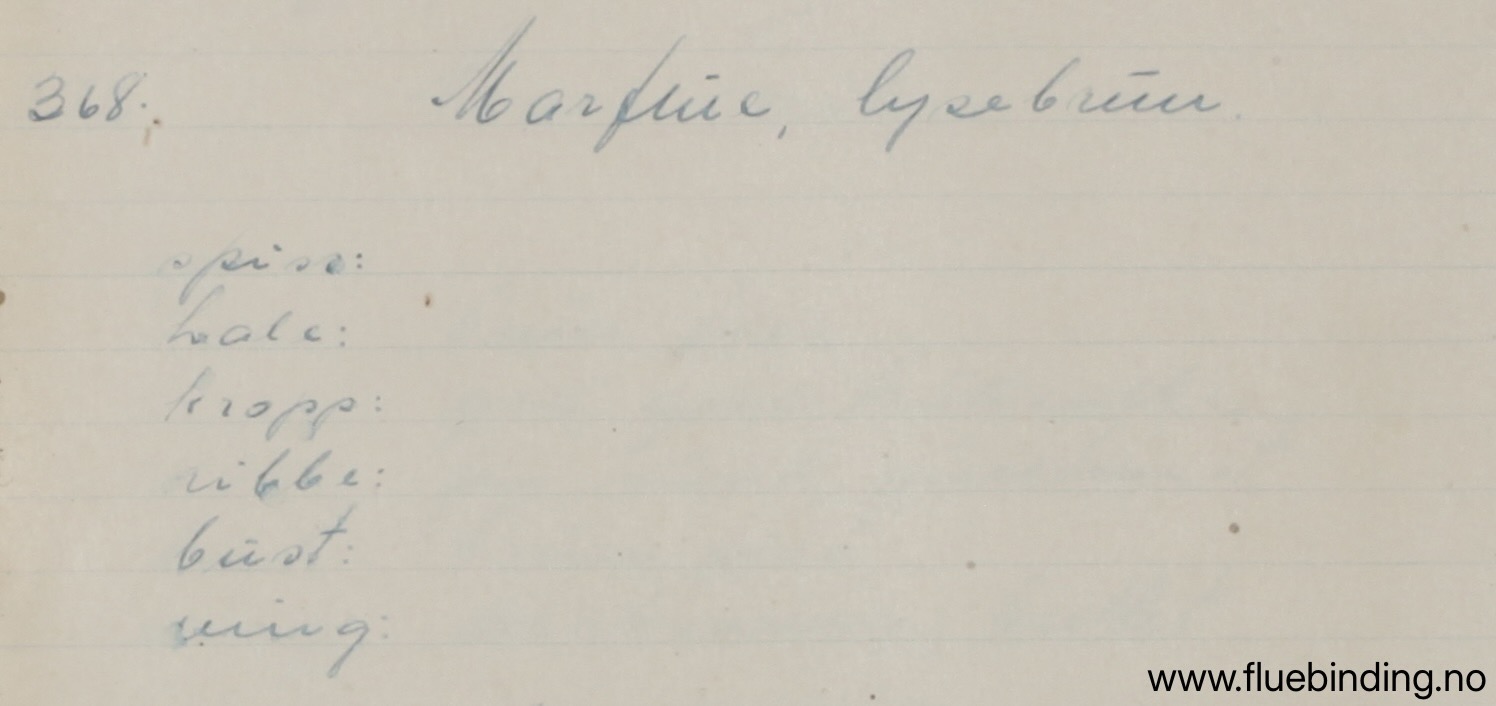 368. Marflue, lysebrun.
spiss:
hale:
kropp:
ribbe:
bust:
ving:
www.fluebinding.no